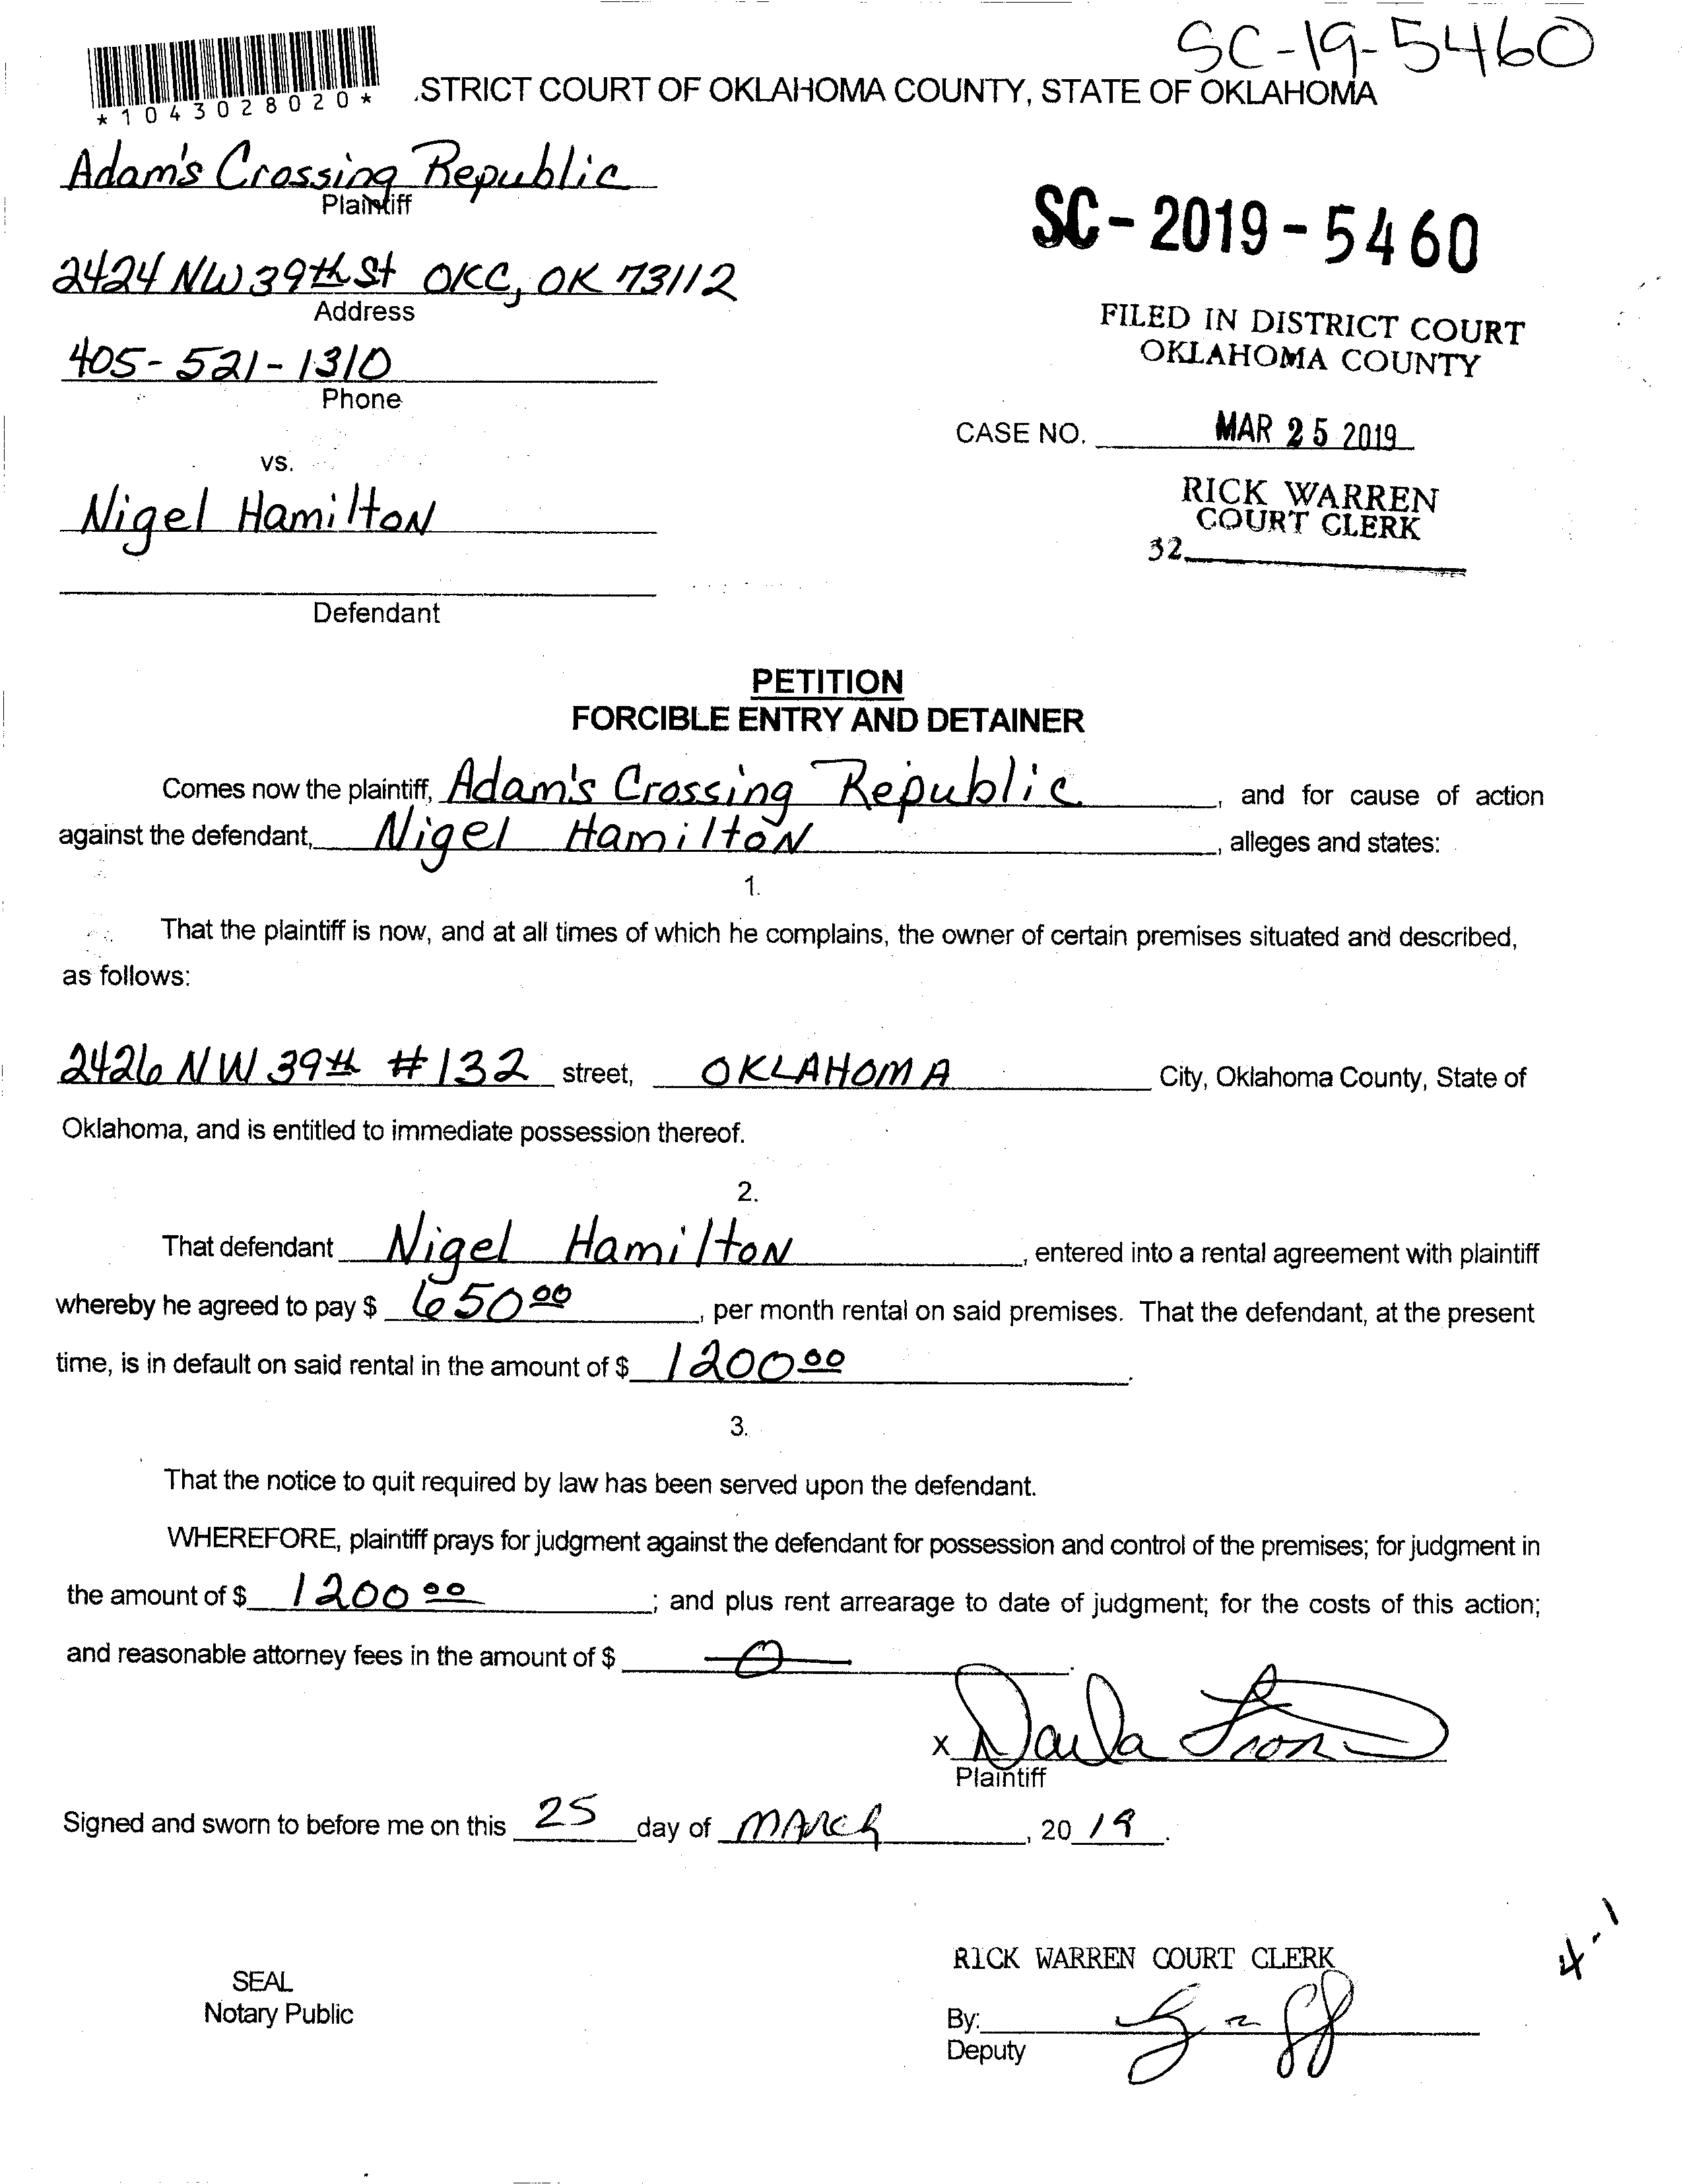 SC-19-5460
*1043028020*
.STRICT COURT OF OKLAHOMA COUNTY, STATE OF OKLAHOMA
Adam's Crossing Republic
Plaintiff
SC-2019-5460
2424 NW 39th St OKC, OK 73112
Address
FILED IN DISTRICT COURT
OKLAHOMA COUNTY
405-521-1310
Phone
CASE NO. MAR 25 2019
vs.
RICK WARREN
COURT CLERK
32
Nigel Hamilton
Defendant
PETITION
FORCIBLE ENTRY AND DETAINER
Comes now the plaintiff, Adam's Crossing Republic, and for cause of action
against the defendant, Nigel Hamilton, alleges and states:
1.
That the plaintiff is now, and at all times of which he complains, the owner of certain premises situated and described,
as follows:
2426 NW 39th #132 street, OKLAHOMA City, Oklahoma County, State of
Oklahoma, and is entitled to immediate possession thereof.
2.
That defendant Nigel Hamilton, entered into a rental agreement with plaintiff
whereby he agreed to pay $ 650 00, per month rental on said premises. That the defendant, at the present
time, is in default on said rental in the amount of $ 1200 00.
3.
That the notice to quit required by law has been served upon the defendant.
WHEREFORE, plaintiff prays for judgment against the defendant for possession and control of the premises; for judgment in
the amount of $ 1200 00; and plus rent arrearage to date of judgment; for the costs of this action;
and reasonable attorney fees in the amount of $ 0.
X Darla
Plaintiff
Signed and sworn to before me on this 25 day of MARch, 20 19.
4-1
RICK WARREN COURT CLERK
SEAL
Notary Public
By:
Deputy